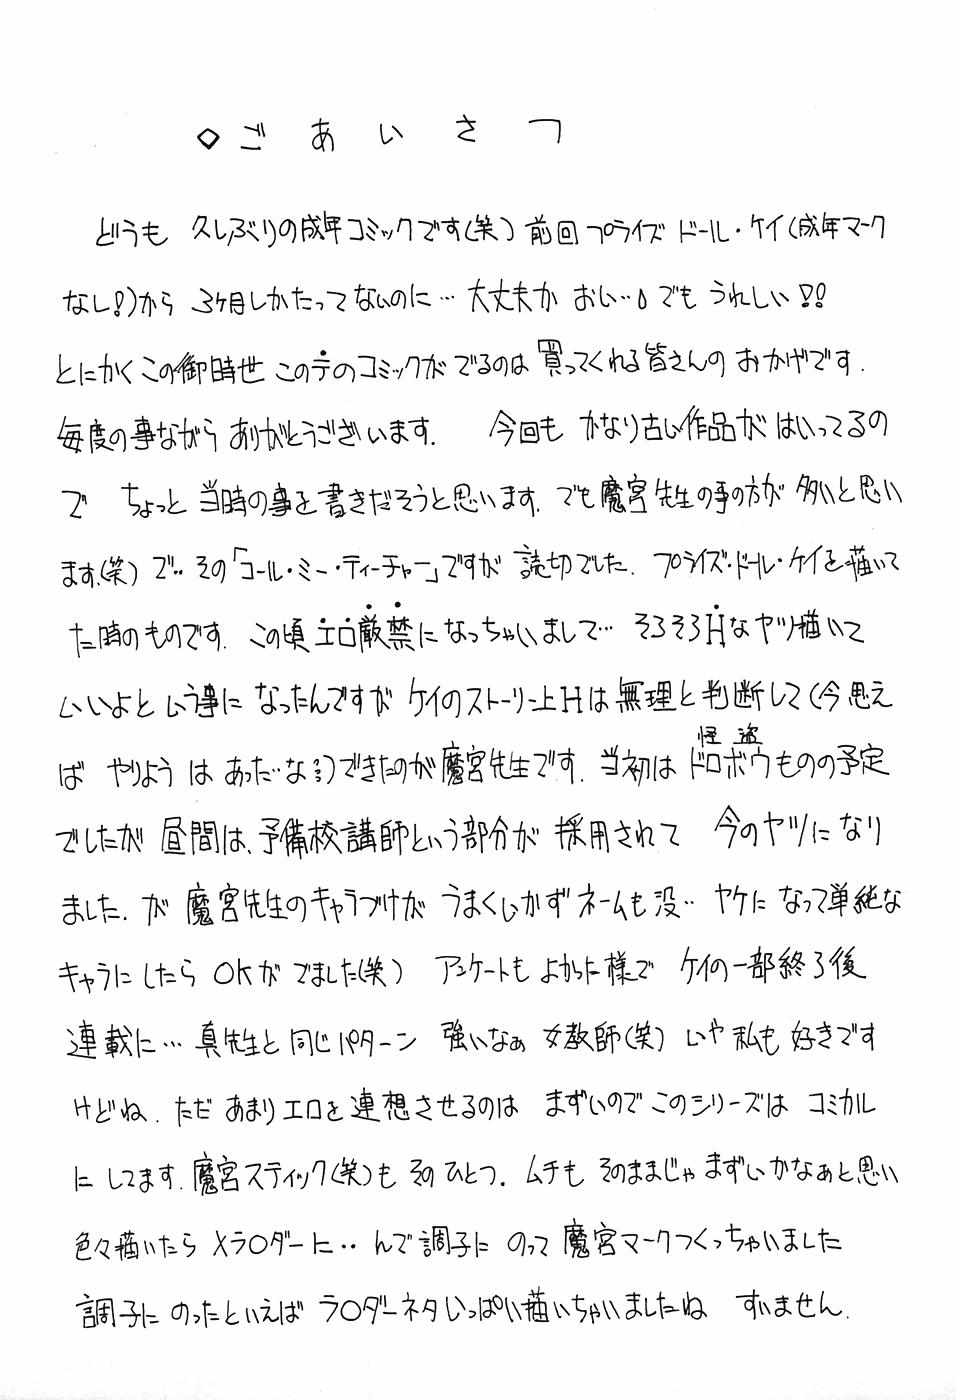 ◇ごあいさつ
どうも 久しぶりの成年コミックです(笑) 前回プライズドール・ケイ(成年マーク
なし!)から 3ヶ月しかたってないのに… 大丈夫か おい… でも うれしい!!
とにかくこの御時世 この手のコミックがでるのは 買ってくれる皆さんの おかげです.
毎度の事ながら ありがとうございます. 今回も かなり古い作品が はいってるの
で ちょっと 当時の事を書きだそうと思います. でも魔宮先生の事の方が 多いと思い
ます.(笑) で‥ その「コール・ミー・ティーチャー」ですが 読切でした. プライズ・ドール・ケイを描いて
た時のものです. この頃 エロ厳禁になっちゃいまして… そろそろHなヤツ描いて
いいよという事に なったんですが ケイのストーリー上Hは無理と判断して(今思え
ば やりようは あった‥な)できたのが魔宮先生です. 当初は ドロボウ(怪盗)ものの予定
でしたが 昼間は、予備校講師という部分が 採用されて 今のヤツになり
ました. が 魔宮先生のキャラづけが うまくいかずネームも没‥ ヤケに なって単純な
キャラにしたら OKが でました(笑) アンケートも よかった様で ケイの一部終了後
連載に… 真先生と同じパターン 強いなぁ 女教師(笑) いや私も好きです
けどね. ただ あまりエロを連想させるのは まずいのでこのシリーズは コミカル
に してます. 魔宮スティック(笑)も そのひとつ. ムチも そのままじゃ まずいかなぁと思い
色々描いたら メラ○ダーに‥ んで調子に のって 魔宮マークつくっちゃいました
調子に のったといえば ラ○ダーネタいっぱい描いちゃいましたね すいません.